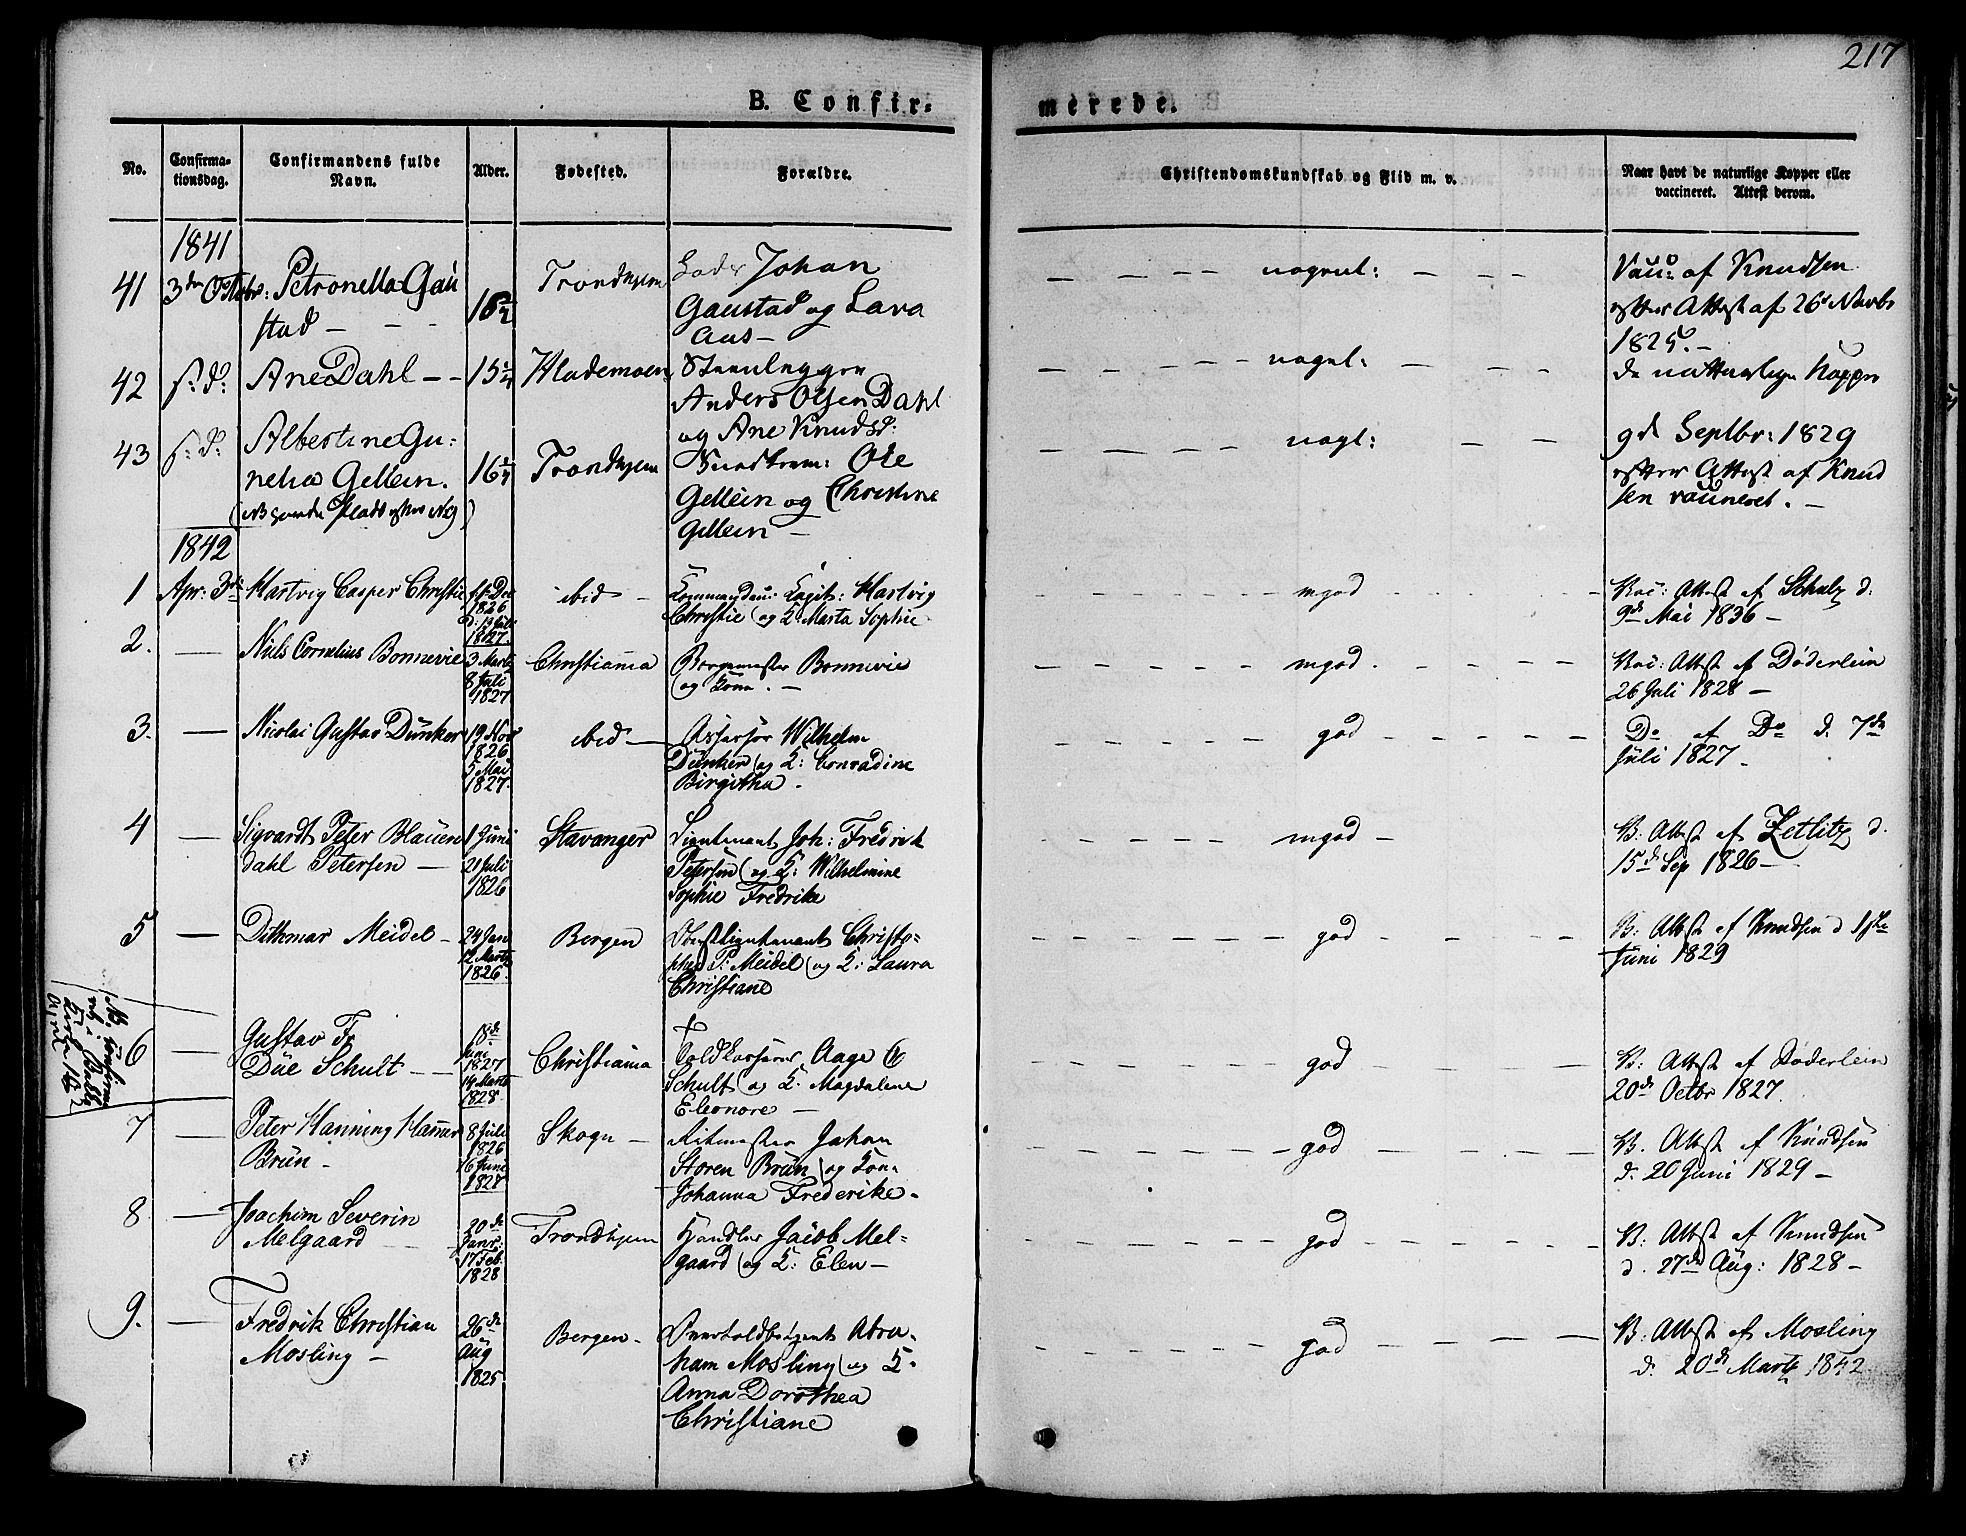 217
B. Confir:
merede.
No.
Confirma-
tionsdag.
Confirmandens fulde
Navn.
Alder.
Fødested.
Forældre.
Christendomskundskab og Flid m. v.
Naar havt de naturlige Kopper eller
vaccineret. Attest derom.
1841
41 3die Octobr: Petronella Gau
stad - - -
16½
Trondhjem
Johan
Gaustad og Lava
Aas -
af Knudsen
efter Attest af 26d Novbr
1825. -
42 s: d: Ane Dahl - - 15
Hlademoen
Steenlegger
Anders Olsen Dahl
og Ane Knudsd:
de naturlige Kopper
43 s: d: Albertine Gu:
nelia Gellein.
16
Trondhjem
Ole
Gellein og Christine
Gellein -
9d Septbr: 1829
efter Attest af Knud
sen vaccineret. -
1842
1 Apr: 3die Hartvig Casper Christie
Dec
1826
d. 19 Juli
1827
ibid -
Capit: Hartvig
Christie og K: Marta Sophie
mgod
Vac: Attest af Schulz d:
9de Mai 1836 -
2. - Niels Cornelius Bonnevie
3 Marts
8 Juli
1827
Christiania
Borgemester Bonnevie
og Kone. -
mgod.
Vac: Attest af Døderlein
26 Juli 1828 -
3. - Nicolai Gustav Dunker
19 Nov
1826
5 Mai
1827.
ibid -
Assessor Wilhelm
Dunker og K: Conradine
Birgitha.
god
Do af Do d. 7de
Juli 1827 -
4 - Sigvardt Peter Blauen
dahl Petersen -
1 Juni
21 Juli
1826
Stavanger
Lieutenant Joh: Fredrik
Petersen og K: Wilhelmine
Sophie Fredrike
mgod -
V. Attest af Zetlitz d.
15de Sep 1826 -
5 - Dithmar Meidel -
24 Jan
12 Marts
1826.
Bergen
Obristlieutenant Christo-
pher P: Meidel og K: Laura
Christiane
god
V: Attest af Knudsen d 1ste
Juni 1829
6 - Gustav Fr
Düe Schult - -
18de
Juni
1827
14 Marts
1828.
Christiania
†
Toldkasserer Aage
Schult og K. Magdalene
Eleonore -
god
V: Attest af Døderlein
20de Octbr 1827.
7 - Peter Hanning Hammer
Brün -
8 Juli
1826
16 Juni
1827
Skogn -
Ritmester Johan
Støren Brün og Kone
Johanna Frederike.
god
V. Attest af Knudsen
d. 20 Juni 1829 -
8 - Joachim Severin
Melgaard
20de
Janr:
17 Feb.
1828
Trondhjem
Handler Jacob Mel-
gaard og K: Elen -
god
V: Attest af Knudsen
d. 27de Aug: 1828 -
9. - Fredrik Christian
Mosling -
26de
Aug
1825
Bergen -
Abra-
ham Mosling og K.
Anna Dorothea
Christiane
god
V: Attest af Mosling
d. 20de Marts 1842